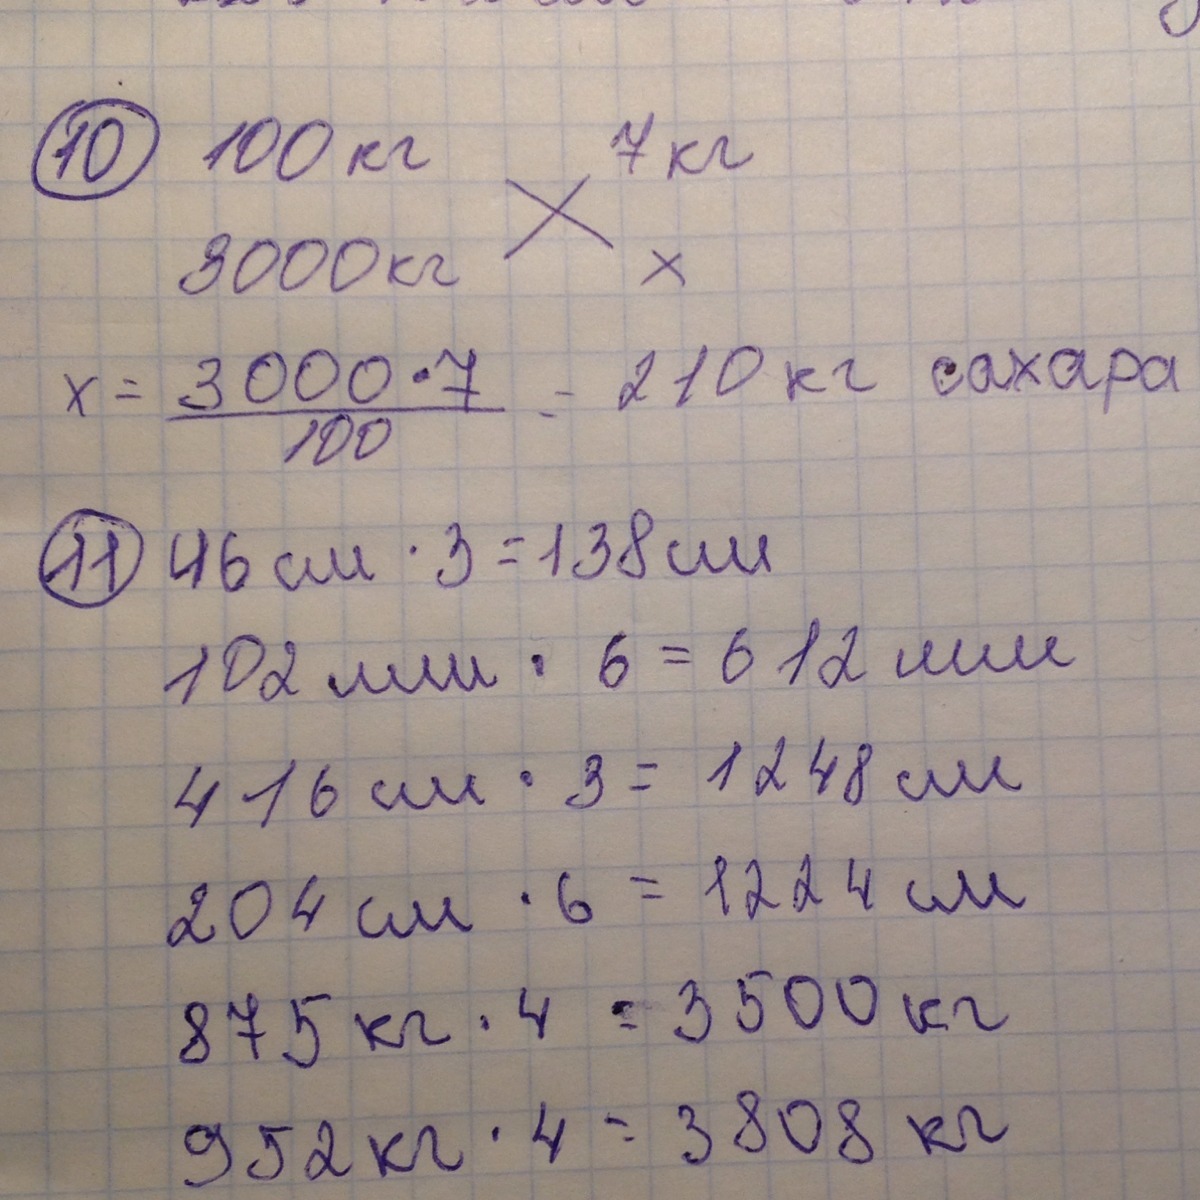 10 100 кг 7 кг
3000 кг х
х = 3000 · 7 / 100 = 210 кг сахара
11 46 см · 3 = 138 см
102 мм · 6 = 612 мм
416 см · 3 = 1248 см
204 см · 6 = 1224 см
875 кг · 4 = 3500 кг
952 кг · 4 = 3808 кг